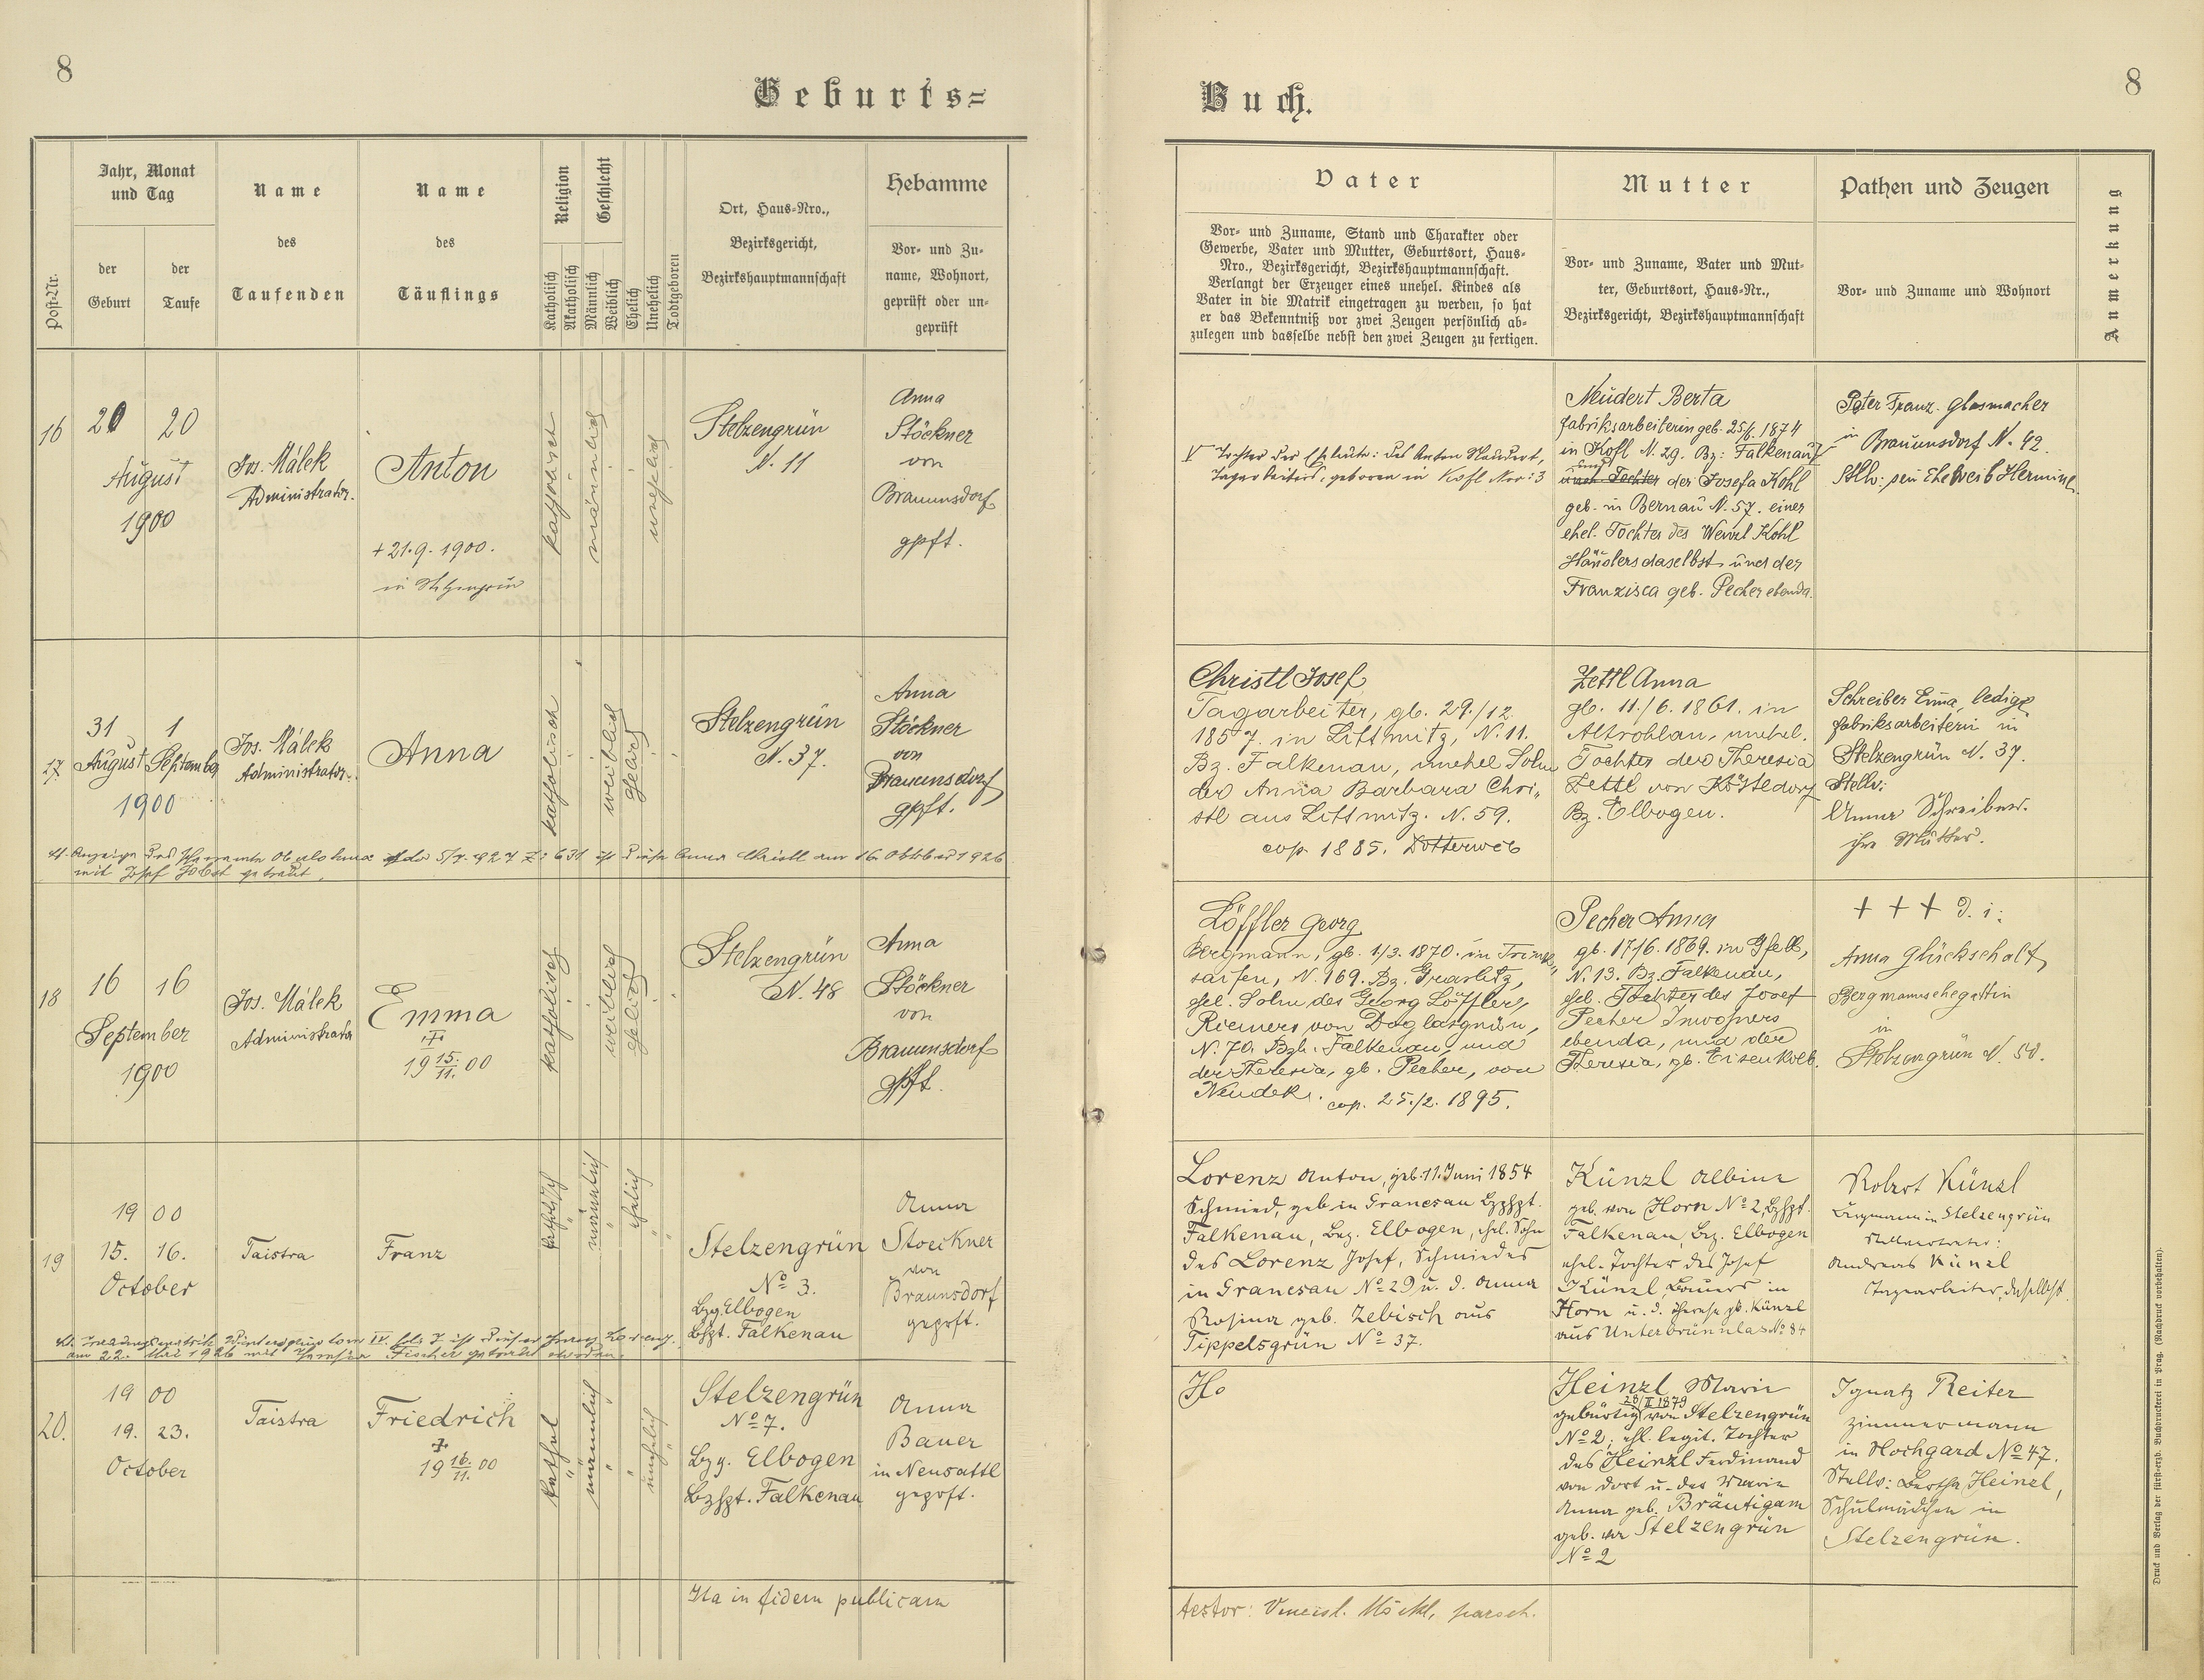 8
Geburts=
Buch.
8
Post-Nr.
Jahr, Monat
und Tag
der
Geburt
der
Taufe
Name
des
Taufenden
Name
des
Täuflings
Religion
Katholisch
Akatholisch
Geschlecht
Männlich
Weiblich
Ehelich
Unehelich
Todtgeboren
Ort, Haus=Nro.,
Bezirksgericht,
Bezirkshauptmannschaft
Hebamme
Vor= und Zu=
name, Wohnort,
geprüft oder un=
geprüft
Vater
Vor= und Zuname, Stand und Charakter oder
Gewerbe, Vater und Mutter, Geburtsort, Haus=
Nro., Bezirksgericht, Bezirkshauptmannschaft.
Verlangt der Erzeuger eines unehel. Kindes als
Vater in die Matrik eingetragen zu werden, so hat
er das Bekenntniß vor zwei Zeugen persönlich ab=
zulegen und dasselbe nebst den zwei Zeugen zu fertigen.
Mutter
Vor= und Zuname, Vater und Mut=
ter, Geburtsort, Haus=Nr.,
Bezirksgericht, Bezirkshauptmannschaft
Pathen und Zeugen
Vor= und Zuname und Wohnort
Anmerkung
16
20 20
August
1900
Jos. Málek
Administrator.
Anton
+ 21.9. 1900.
in Stelzengrün
katholisch
männlich
unehelich
Stelzengrün
N. 11
Anna
Stöckner
von
Braunsdorf
gpft.
V Tochter der Eheleute: des Anton Neudert,
Tagarbeiters, geboren in Kofl Nro: 3
Neudert Berta
Fabriksarbeiterin geb. 25/6. 1874
in Kofl N. 29. Bz: Falkenau V
und
Tochter der Josefa Kohl
geb. in Bernau N. 57. einer
ehel. Tochter des Wenzl Kohl
Häuslers daselbst und der
Franzisca geb. Pecher ebenda.
Peter Franz. Glasmacher
in Braunsdorf N. 42.
Stllv: sein Eheweib Hermine.
17
31 1
August September
1900
Jos. Málek
Administrator.
Anna
katholisch
weiblich
ehelich
Stelzengrün
N. 37.
Anna
Stöckner
von
Braunsdorf
gpft.
Christl Josef
Tagarbeiter, gb. 29./12.
1857. in Littmitz, N. 11.
Bz. Falkenau, unehel Sohn
der Anna Barbara Chri„
stl aus Littmitz. N. 59.
cop. 1885. Dotterwib
Zettl Anna
gb. 11./6. 1861. in
Altrohlau, unehel.
Tochter der Theresia
Zettl von Köstldorf
Bz. Elbogen.
Schreiber Emma, ledige
Fabriksarbeiterin in
Stelzengrün N. 37.
Stellv:
Anna Schreiber.
ihre Mutter.
mit Josef Jobst getraut.
18
16 16
September
1900
Jos. Málek
Administrator
Emma
+
19 15./11. 00
katholisch
weiblich
ehelich
Stelzengrün
N. 48
Anna
Stöckner
von
Braunsdorf
gpft.
Löffler Georg
Bergmann, gb. 1/3. 1870. in Trink„
saifen, N. 169. Bz. Graslitz,
ehel. Sohn des Georg Löfflers,
Riemers von Doglasgrün,
N. 70. Bzh. Falkenau, und
der Theresia, gb. Pecher, von
Neudek. cop. 25./2. 1895.
Pecher Anna
gb. 17/6. 1869. in Gfell,
N. 13. Bz. Falkenau,
ehel. Tochter des Josef
Pecher Inwohners
ebenda, und der
Theresia, gb. Eisenkolb.
+ + + d. i:
Anna Glückschalt,
Bergmannsehegattin
in
Stelzengrün N. 50.
19
19 00
15. 16.
October
Taistra
Franz
katholisch
männlich
ehelich
Stelzengrün
No 3.
Bzg. Elbogen
Bzhpt. Falkenau
Anna
Stoeckner
von
Braunsdorf
geprft.
Lorenz Anton, geb. 11. Juni 1854
Schmied, geb in Granesau Bzhpt.
Falkenau, Bzg. Elbogen, ehel. Sohn
des Lorenz Josef, Schmiedes
in Granesau No 29 u. d. Anna
Rosina geb. Zebisch aus
Tippelsgrün No 37.
Künzl Albine
geb. von Horn No 2, Bzhpt.
Falkenau, Bzg. Elbogen
ehel. Tochter des Josef
Künzl, Bauers in
Horn u. d. Theresia gb. Künzl
aus Unterbrünnlas No 84
Robert Künzl
Bergmann in Stelzengrün
Stellvertreter:
Andreas Künzl
Tagarbeiter, daselbst.
am 22. Mai 1926 mit Fischer getraut worden.
20.
19 00
19. 23.
October
Taistra
Friedrich
+
19 16./11. 00
kathol
männlich
unehelich
Stelzengrün
No 7.
Bzg. Elbogen
Bzhpt. Falkenau
Anna
Bauer
in Neusattl
geprft.
Heinzl Marie
28/II 1879
gebürtig von Stelzengrün
No 2; ehl. legit. Tochter
des Heinzl Ferdinand
von dort u. der Marie
Anna geb. Bräutigam
geb. von Stelzengrün
No 2
Ignatz Reiter
Zimmermann
in Hochgard No 47.
Stellv: Bertha Heinzl,
Schulmädchen in
Stelzengrün.
Ita in fidem publicam
testor:
Druck und Verlag der fürst=erzb. Buchdruckerei in Prag. (Nachdruck vorbehalten).